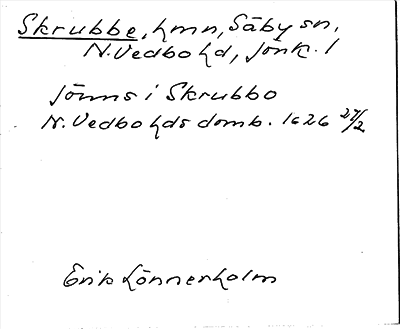 Skrubbe, hmn, Säby sn,
N. Vedbo hd, Jönk. l
Jönns i Skrubbo
N. Vedbo hds domb. 1626 27/2
Erik Lönnerholm